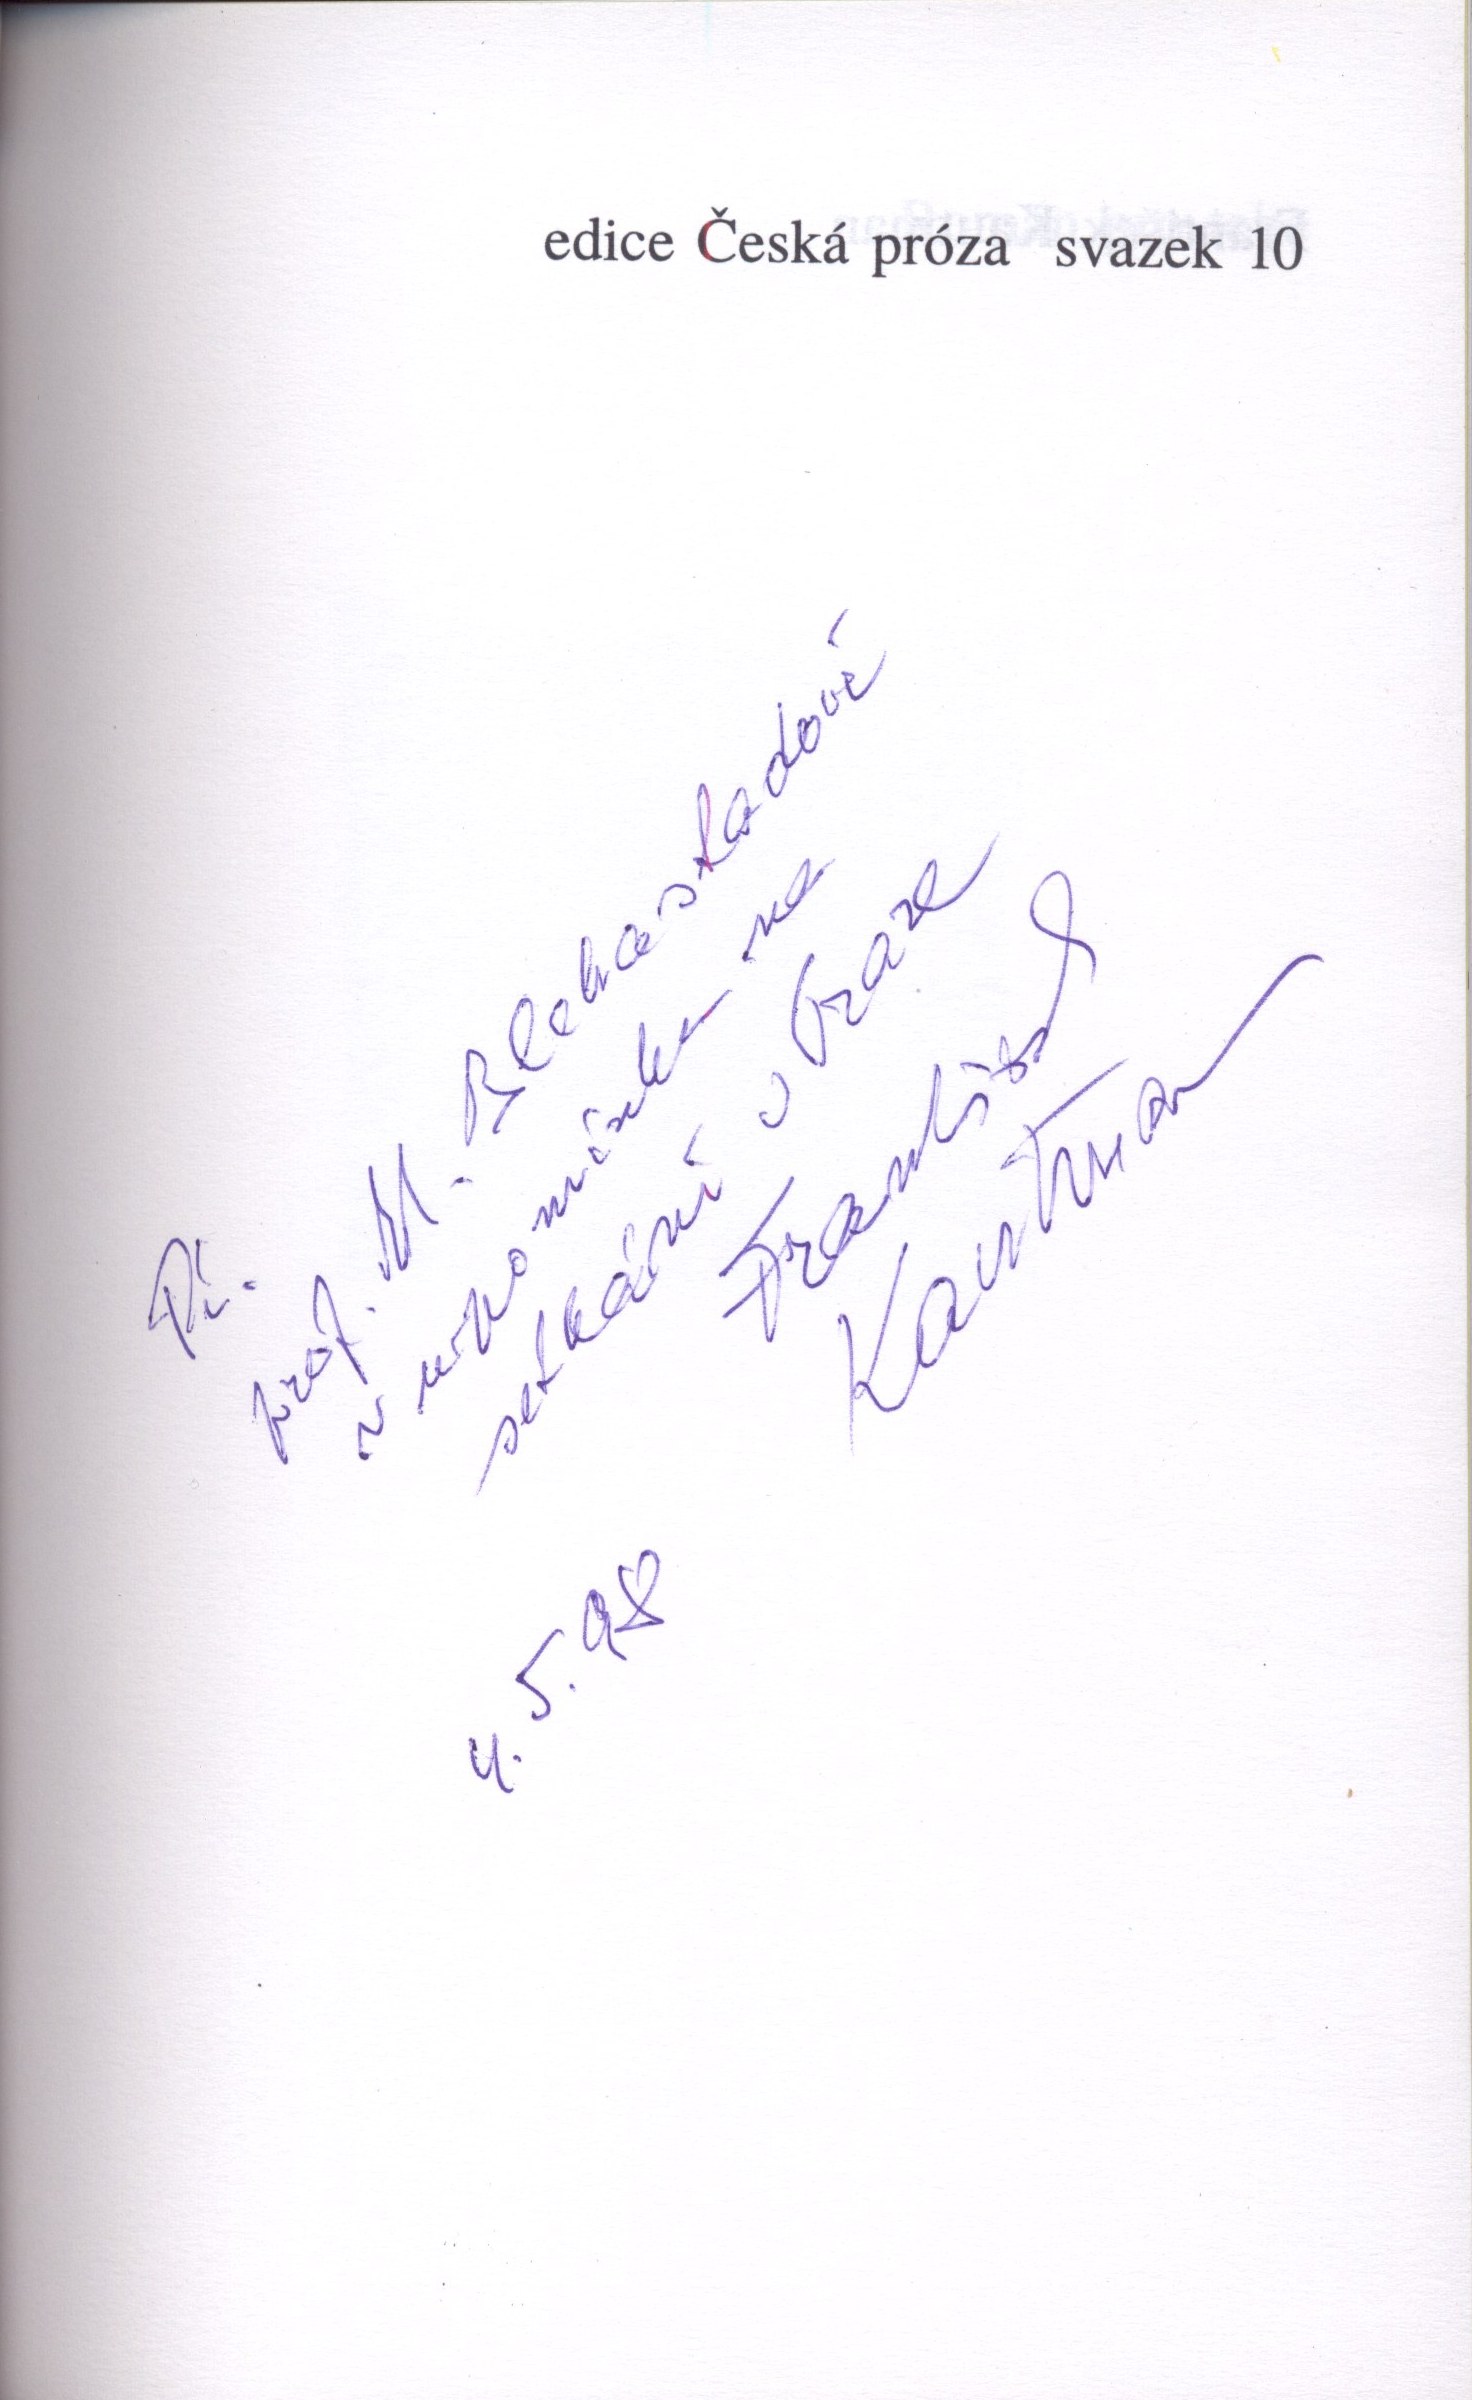 edice Česká próza svazek 10
Pí.
prof. M. Blekastadové
v upomínku na
setkání v Praze
František
Kautman
4. 5. 98